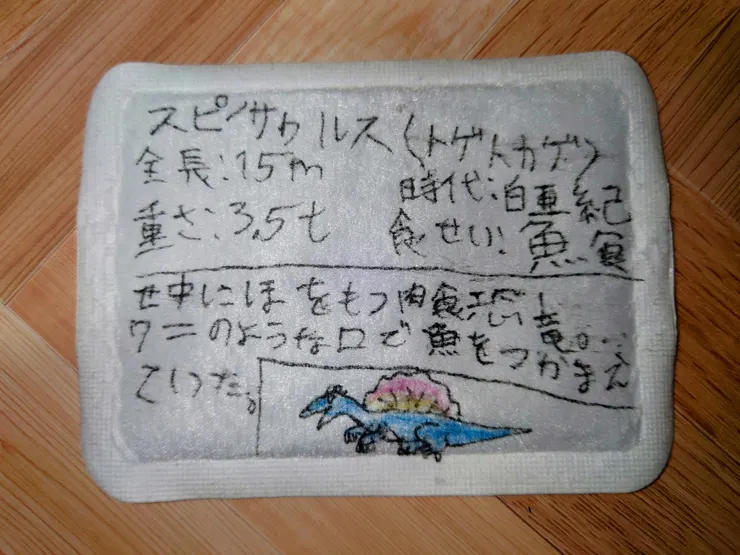 スピノサウルス(トゲトカゲ)
全長:15m
時代:白亜紀
重さ:3.5t
食せい:魚食
せ中にほをもつ肉食恐竜。
ワニのような口で魚をつかまえ
ていた。